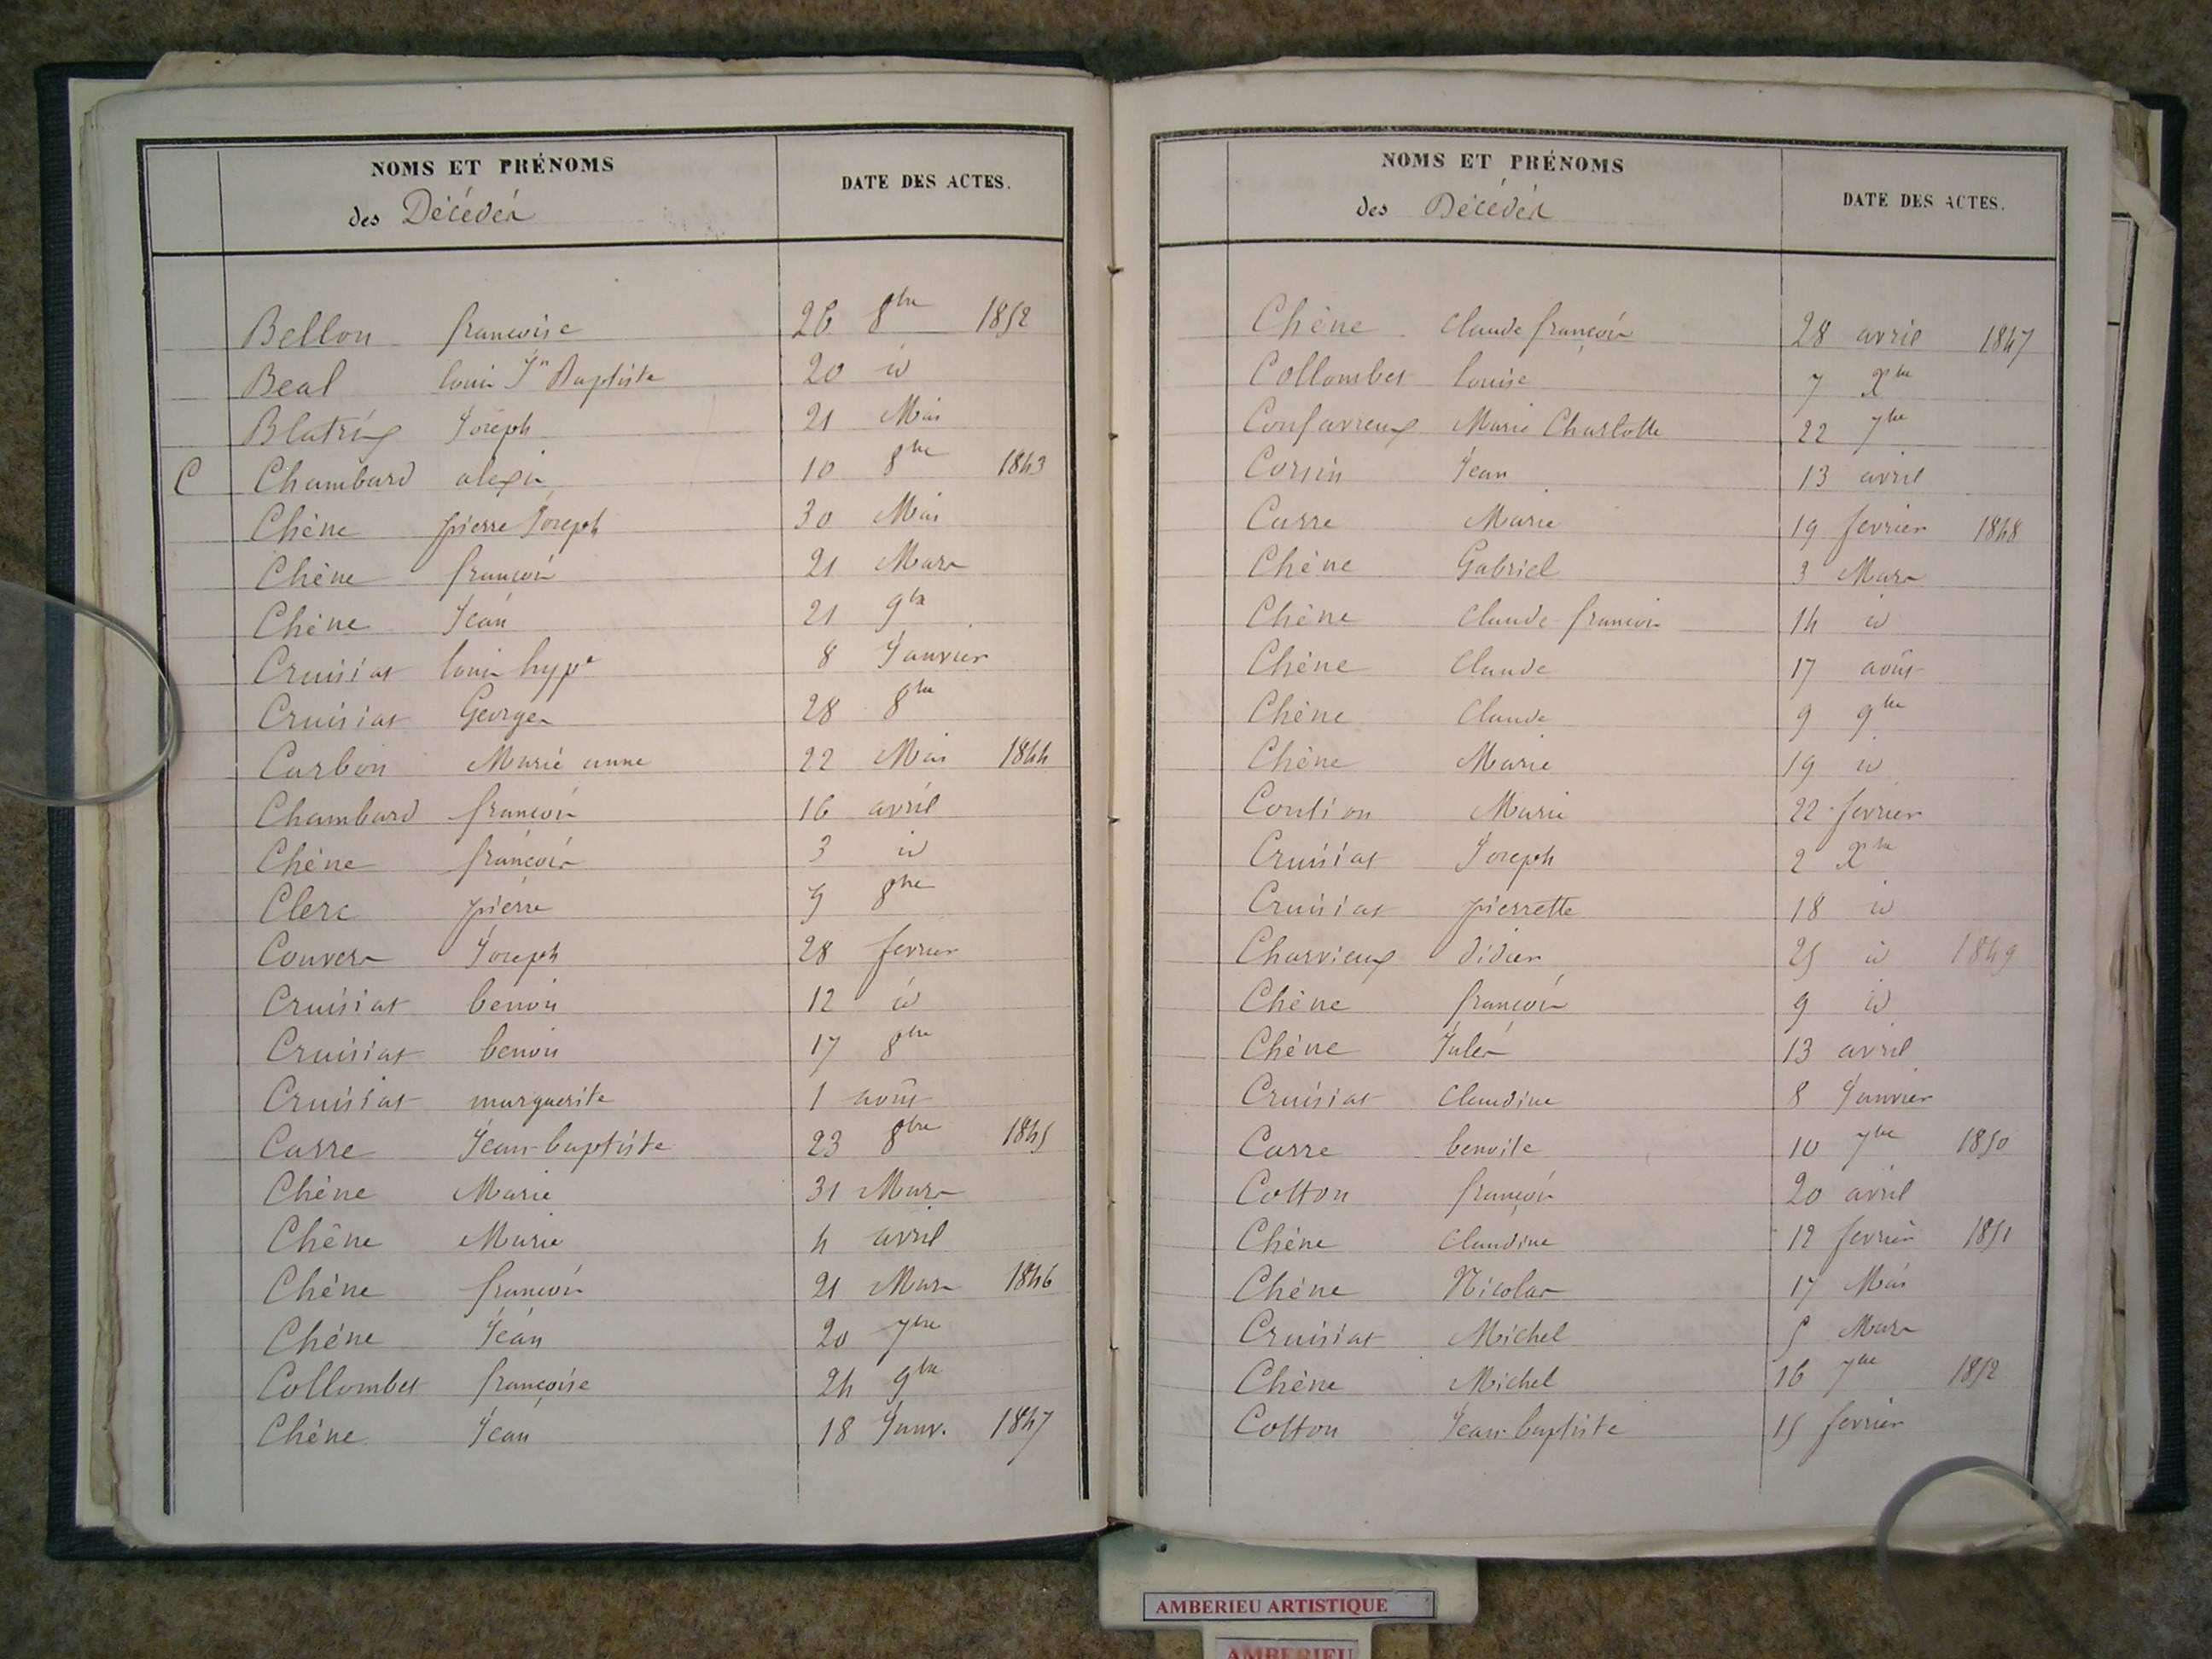 NOMS ET PRÉNOMS
des Décédés
DATE DES ACTES.
Bellon françoise 26 8bre 1852
Beal louis Jn Baptiste 20 id
Blatrix Joseph 21 Mai
C Chambard alexis 10 8bre 1843
Chêne pierre Joseph 30 Mai
Chêne françois 21 Mars
Chêne Jean 21 9bre
Cruisiat louis hypte 8 Janvier
Cruisiat Georges 28 8bre
Carbon Marie anne 22 Mai 1844
Chambard françois 16 avril
Chêne françois 3 id
Clerc pierre 9 8bre
Convers Joseph 28 fevrier
Cruisiat benoit 12 id
Cruisiat benoit 17 8bre
Cruisiat marguerite 1 août
Carre Jean-baptiste 23 8bre 1845
Chêne Marie 31 Mars
Chêne Marie 4 avril
Chêne françois 21 Mars 1846
Chêne Jean 20 7bre
Collombet françoise 24 9bre
Chêne Jean 18 Janv. 1847
NOMS ET PRÉNOMS
des Décédés
DATE DES ACTES.
Chêne Claude françois 28 avril 1847
Collombet louise 7 Xbre
Confavreux Marie Charlotte 22 7bre
Corsin Jean 13 avril
Carre Marie 19 fevrier 1848
Chêne Gabriel 3 Mars
Chêne Claude françois 14 id
Chêne Claude 17 août
Chêne Claude 9 9bre
Chêne Marie 19 id
Marie 22 fevrier
Cruisiat Joseph 2 Xbre
Cruisiat pierrette 18 id
Charvieux didier 25 id 1849
Chêne françois 9 id
Chêne Jules 13 avril
Cruisiat Claudine 8 Janvier
Carre benoite 10 7bre 1850
Cotton françois 20 avril
Chêne Claudine 12 fevrier 1851
Chêne Nicolas 17 Mai
Cruisiat Michel 5 Mars
Chêne Michel 16 7bre 1852
Cotton Jean-baptiste 15 fevrier
AMBERIEU ARTISTIQUE
AMBERIEU